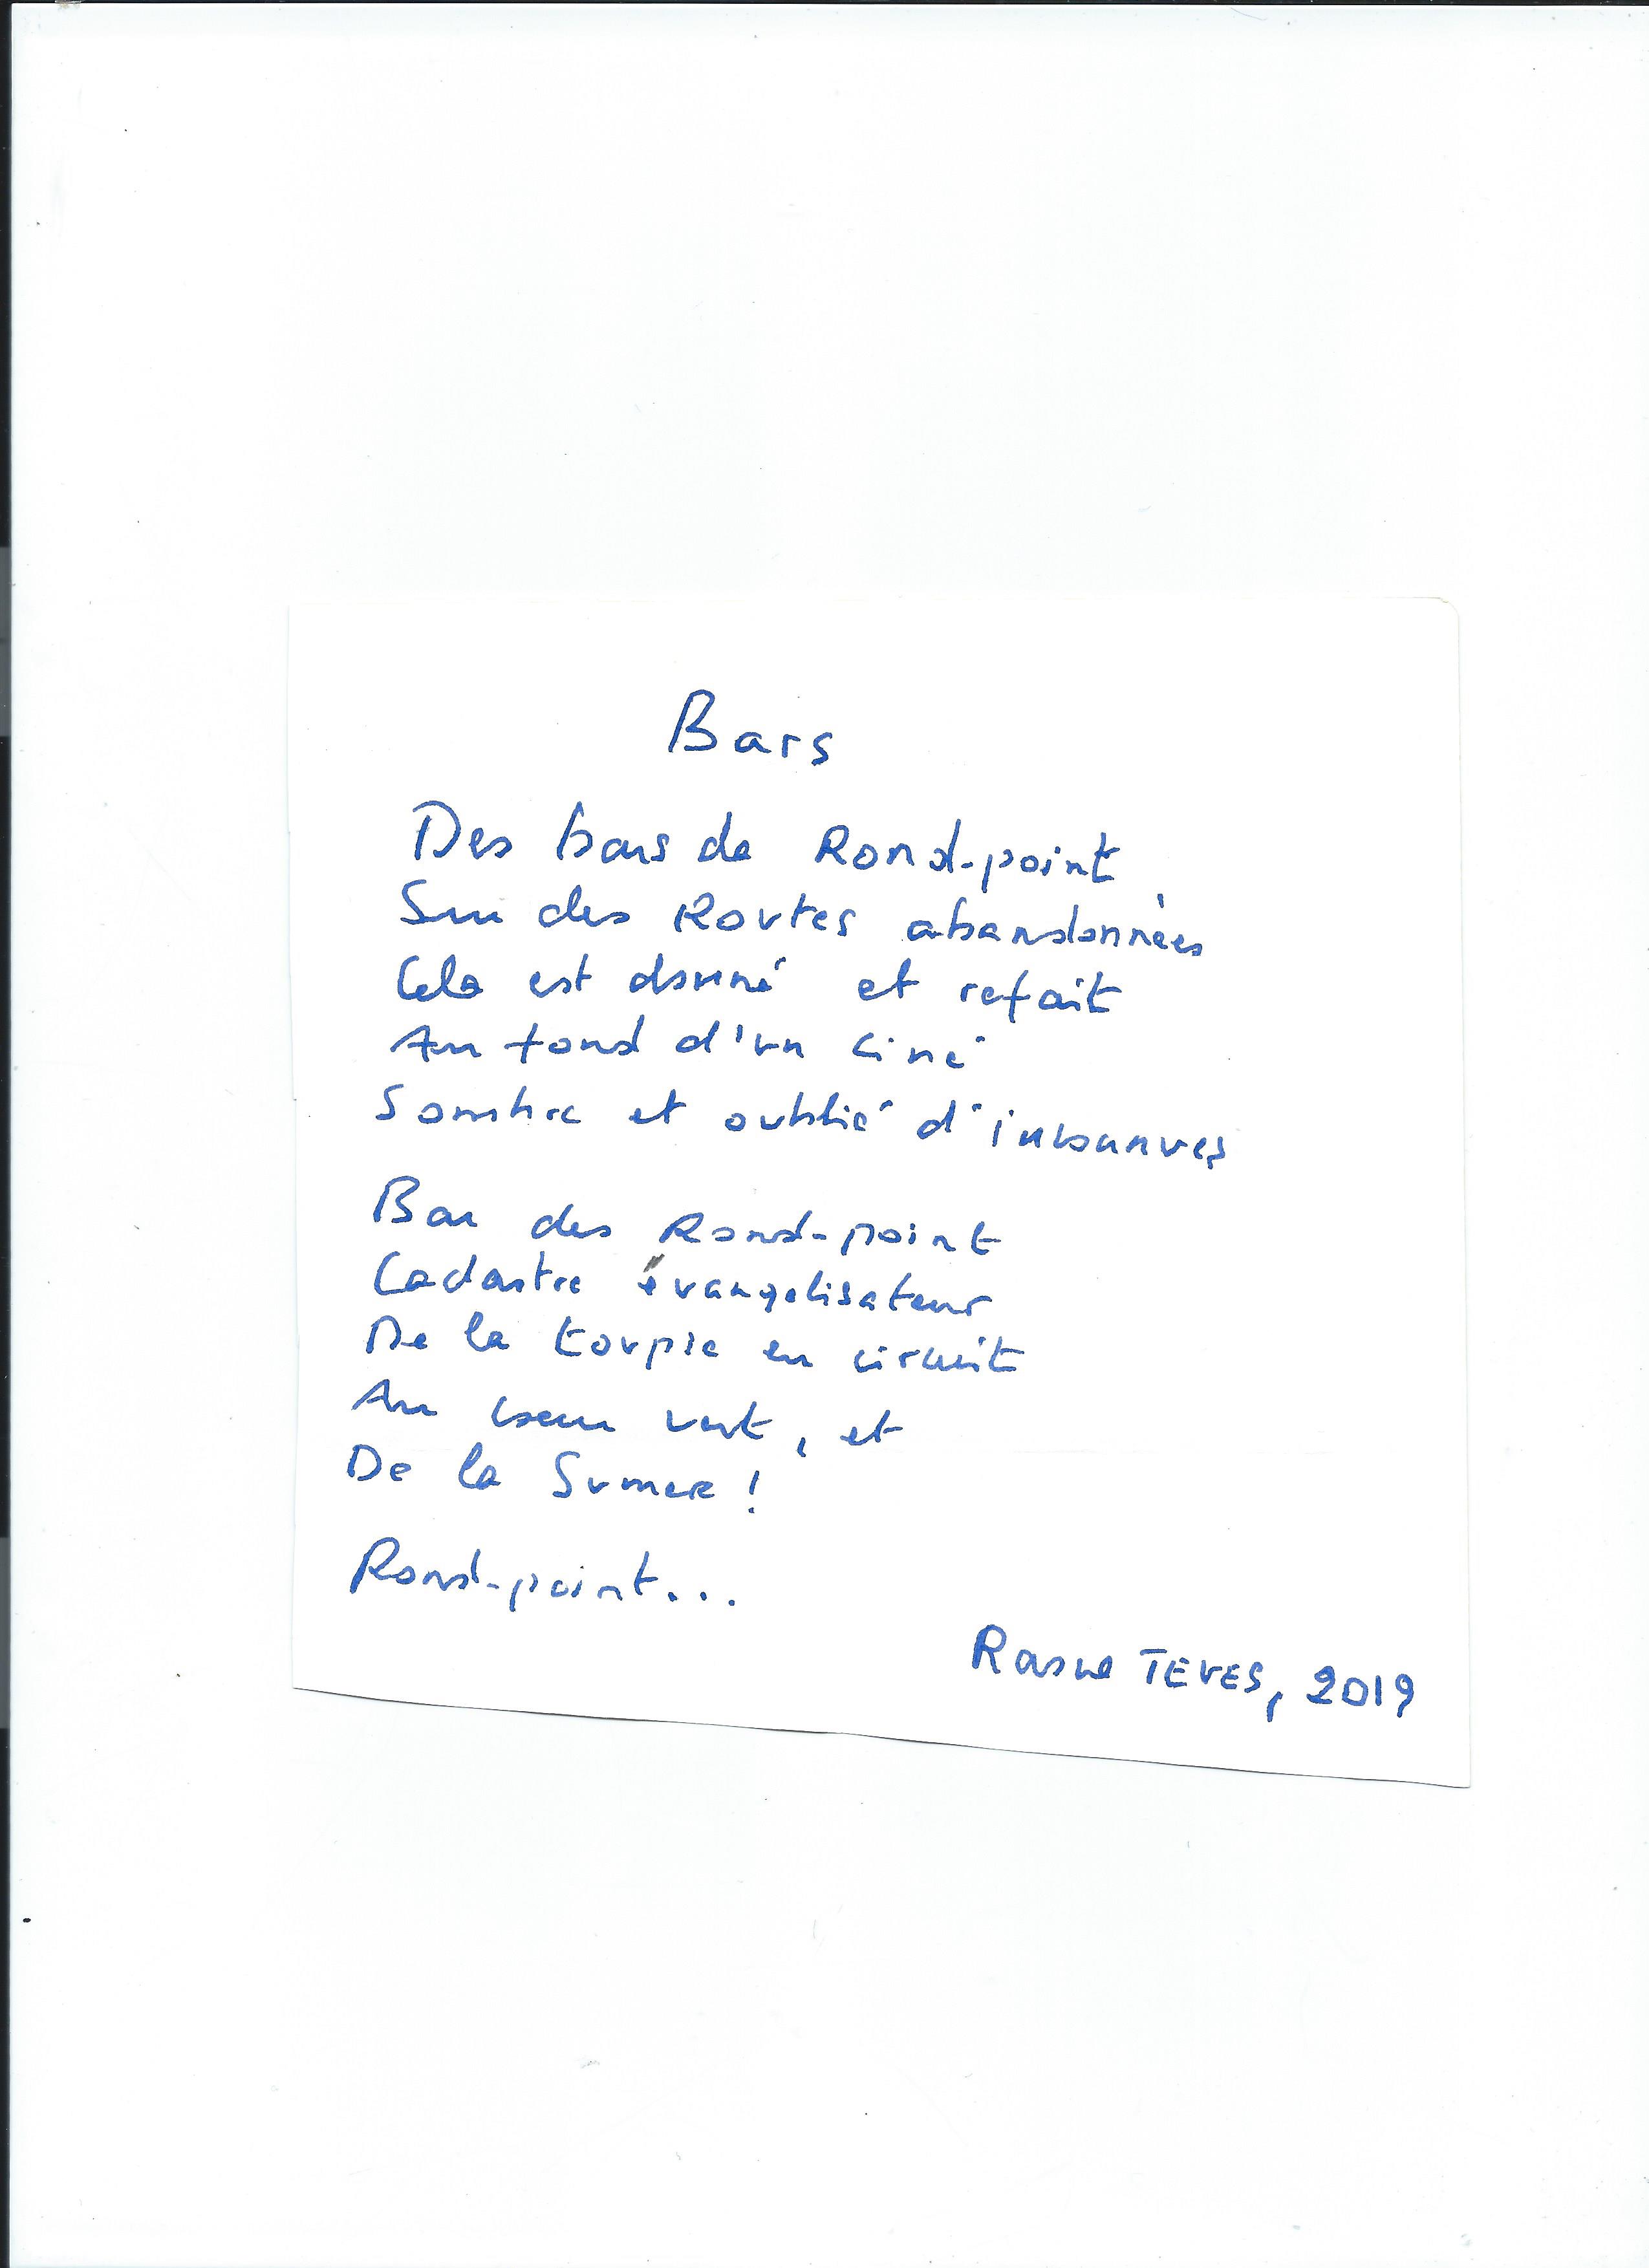 Bars
Des bars de Rond-point
Sur des Routes abandonnées
Cela est donné et refait
Au fond d'un ciné
Sombre et oublié d'
Bar des Rond-point
Cadastre évangelisateur
De la toupie en circuit
Au vert, et
De la Sumer !
Rond-point...
TEVES, 2019